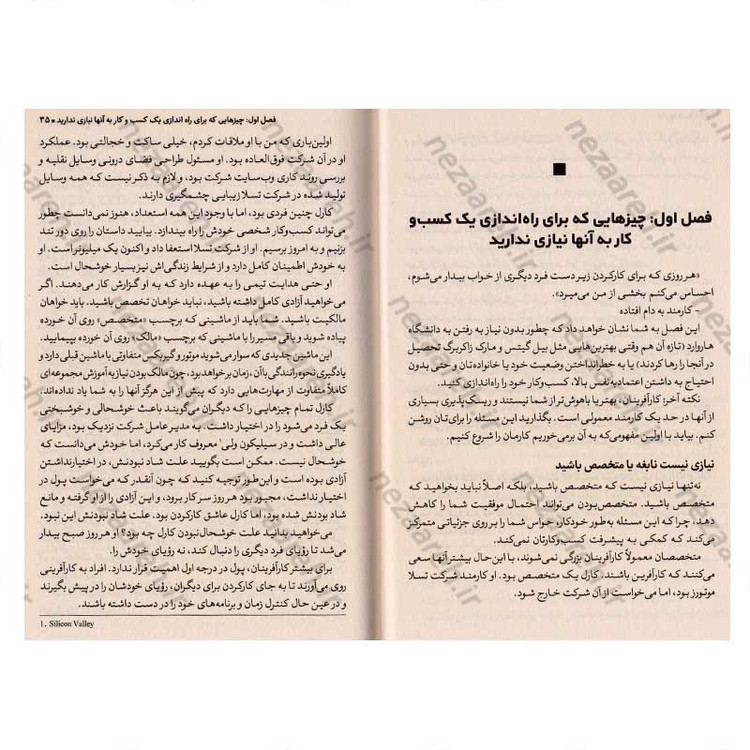 ■
فصل اول: چیزهایی که برای راه‌اندازی یک کسب‌و
کار به آنها نیازی ندارید
«هر روزی که برای کارکردن زیر دست فرد دیگری از خواب بیدار می‌شوم،
احساس می‌کنم بخشی از من می‌میرد».
- کارمند به دام افتاده
این فصل به شما نشان خواهد داد که چطور بدون نیاز به رفتن به دانشگاه
هاروارد (تازه آن هم وقتی بهترین‌هایی مثل بیل گیتس و مارک زاکربرگ تحصیل
در آنجا را رها کردند) یا به خطرانداختن وضعیت خود یا خانواده‌تان و حتی بدون
احتیاج به داشتن اعتمادبه‌نفس بالا، کسب‌وکار خود را راه‌اندازی کنید.
نکته آخر: کارآفرینان، بهتر یا باهوش‌تر از شما نیستند و ریسک‌پذیری بسیاری
از آنها در حد یک کارمند معمولی است. بگذارید این مسئله را برای‌تان روشن
کنم. بیاید با اولین مفهومی‌که به آن برمی‌خوریم کارمان را شروع کنیم.
نیازی نیست نابغه یا متخصص باشید
نه‌تنها نیازی نیست که متخصص باشید، بلکه اصلاً نباید بخواهید که
متخصص باشید. متخصص‌بودن می‌تواند احتمال موفقیت شما را کاهش
دهد، چرا که این مسئله به‌طور خودکار، حواس شما را بر روی جزئیاتی متمرکز
می‌کند که کمکی به پیشرفت کسب‌وکارتان نمی‌کند.
متخصصان معمولاً کارآفرینان بزرگی نمی‌شوند، با این‌حال بیشتر آنها سعی
می‌کنند که کارآفرین باشند. کارل یک متخصص بود. او کارمند شرکت تسلا
موتورز بود، اما می‌خواست از آن شرکت خارج شود.
فصل اول: چیزهایی که برای راه اندازی یک کسب و کار به آنها نیازی ندارید ● ۳۵
اولین‌باری که من با او ملاقات کردم، خیلی ساکت و خجالتی بود. عملکرد
او در آن شرکت فوق‌العاده بود. او مسئول طراحی فضای درونی وسایل نقلیه و
بررسی روند کاری وب‌سایت شرکت بود، و لازم به ذکر نیست که همه وسایل
تولید شده در شرکت تسلا زیبایی چشمگیری دارند.
کارل چنین فردی بود، اما با وجود این همه استعداد، هنوز نمی‌دانست چطور
می‌تواند کسب‌وکار شخصی خودش را راه بیندازد. بیایید داستان را روی دور تند
بزنیم و به امروز برسیم. او از شرکت تسلا استعفا داد و اکنون یک میلیونر است. او
به خودش اطمینان کامل دارد و از شرایط زندگی‌اش نیز بسیار خوشحال است.
او حتی هدایت تیمی را به عهده دارد که به او گزارش کار می‌دهند. اگر
می‌خواهید آزادی کامل داشته باشید، نباید خواهان تخصص باشید. باید خواهان
مالکیت باشید. شما باید از ماشینی که برچسب «متخصص» روی آن خورده
پیاده شوید و باقی مسیر را با ماشینی که برچسب «مالک» روی آن خورده بپیمایید.
این ماشین جدیدی که سوار می‌شوید موتور و گیربکس متفاوتی با ماشین قبلی دارد و
یادگیری نحوه رانندگی با آن، زمان بر خواهد بود، چون مالک بودن نیاز به آموزش مجموعه‌ای
کاملاً متفاوت از مهارت‌هایی دارد که پیش از این هرگز آنها را به شما یاد نداده‌اند.
کارل تمام چیزهایی را که دیگران می‌گویند باعث خوشحالی و خوشبختی
یک فرد می‌شود را در اختیار داشت. به مدیر عامل شرکت نزدیک بود، مزایای
عالی داشت و در سیلیکون ولی¹ معروف کار می‌کرد، اما خودش می‌دانست که
خوشحال نیست. ممکن است بگویید علت شاد نبودنش، در اختیارنداشتن
آزادی بوده است و این‌طور توجیه کنید که چون آنقدر که می‌خواست پول در
اختیار نداشت، مجبور بود هر روز سر کار برود، و این آزادی را از او گرفته و مانع
شاد بودنش شده بود، اما کارل عاشق کارکردن بود. علت شاد نبودنش این نبود.
می‌خواهید بدانید علت خوشحال‌نبودن کارل چه بود؟ او هر روز صبح بیدار
می‌شد تا رؤیای فرد دیگری را دنبال کند، نه رؤیای خودش را.
برای بیشتر کارآفرینان، پول در درجه اول اهمیت قرار ندارد. افراد به کارآفرینی
روی می‌آورند تا به جای کارکردن برای دیگران، رؤیای خودشان را در پیش بگیرند
و در عین حال کنترل زمان و برنامه‌های خود را در دست داشته باشند.
1. Silicon Valley
nezaareh.ir